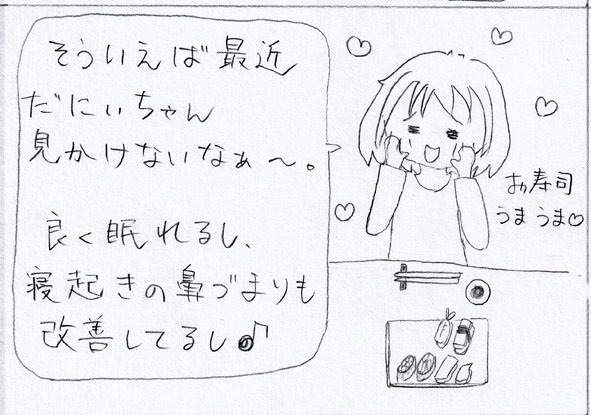 そういえば最近
だにぃちゃん
見かけないなぁ〜。
良く眠れるし、
寝起きの鼻づまりも
改善してるし♪
お寿司
うまうま♡